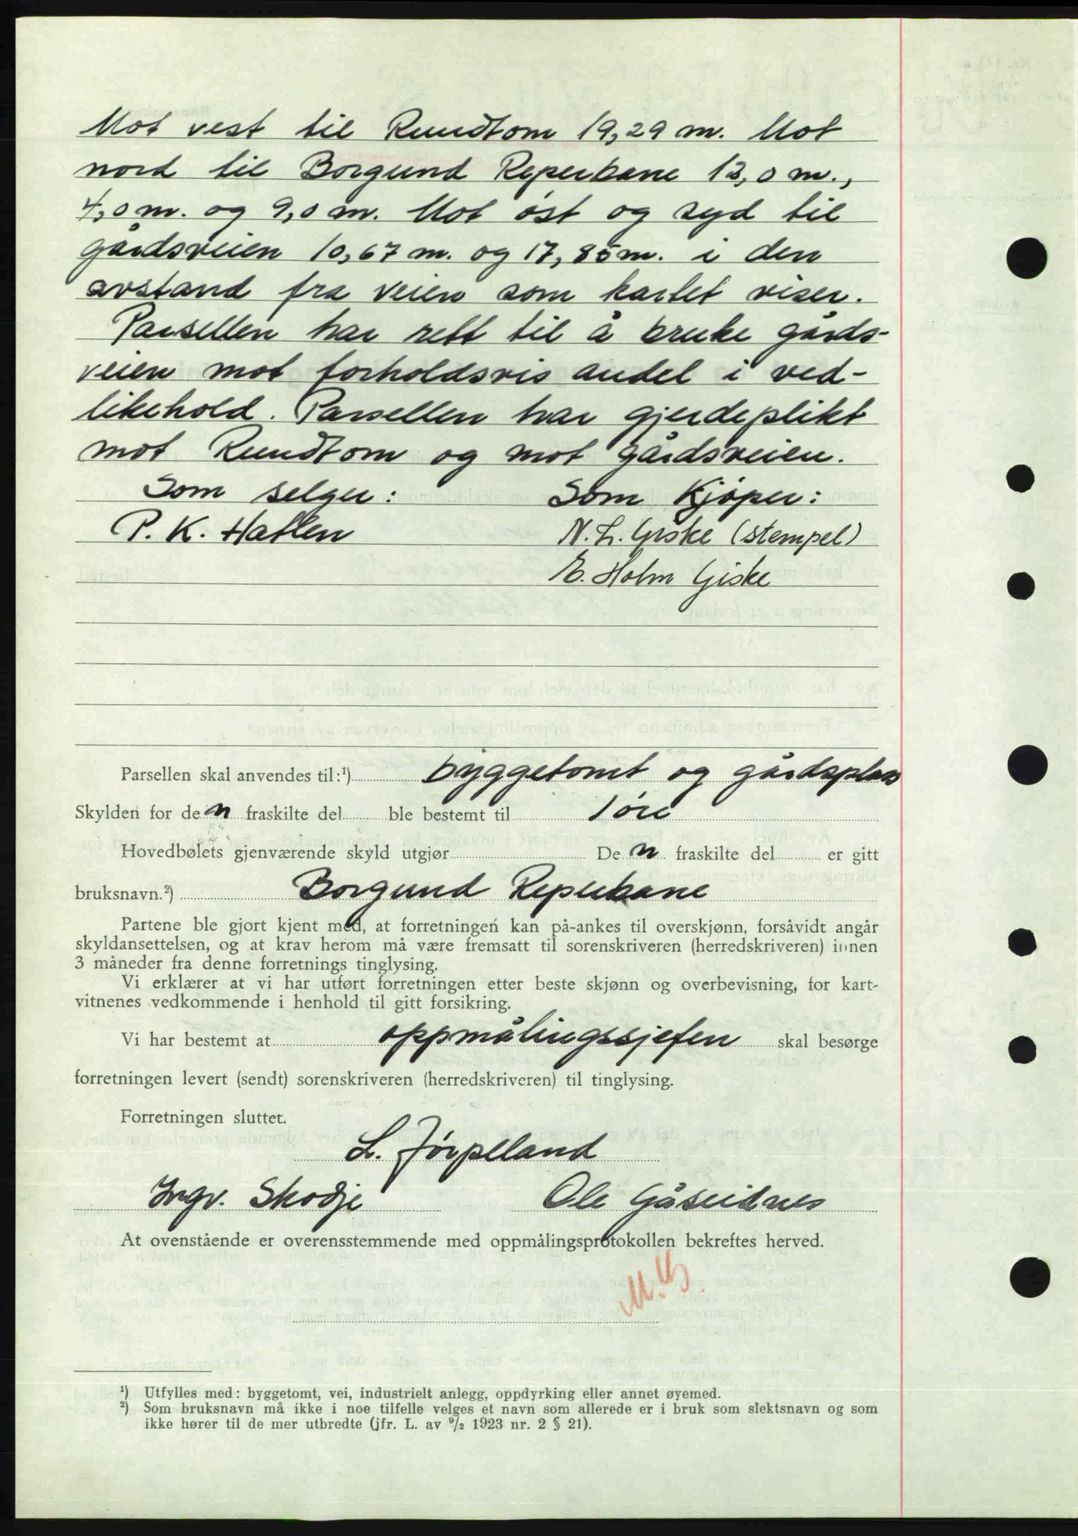 Mot vest til Rundtom 19,29 m. Mot
nord til Borgund Reperbane 13,0 m.,
4,0 m. og 9,0 m. Mot øst og syd til
gårdsveien 10,67 m. og 17,85 m. i den
avstand fra veien som kartet viser.
Parsellen har rett til å bruke gårds-
veien mot forholdsvis andel i ved-
likehold. Parsellen har gjerdeplikt
mot Rundtom og mot gårdsveien.
Som selger: Som Kjøper:
P. K. Hatlen N. L. Giske (stempel)
E. Holm Giske
Parsellen skal anvendes til:¹) byggetomt og gårdsplass
Skylden for den fraskilte del ble bestemt til 1 øre
Hovedbølets gjenværende skyld utgjør De n fraskilte del er gitt
bruksnavn.²) Borgund Reperbane
Partene ble gjort kjent med, at forretningen kan på-ankes til overskjønn, forsåvidt angår
skyldansettelsen, og at krav herom må være fremsatt til sorenskriveren (herredskriveren) innen
3 måneder fra denne forretnings tinglysing.
Vi erklærer at vi har utført forretningen etter beste skjønn og overbevisning, for kart-
vitnenes vedkommende i henhold til gitt forsikring.
Vi har bestemt at oppmålingssjefen skal besørge
forretningen levert (sendt) sorenskriveren (herredskriveren) til tinglysing.
Forretningen sluttet.
L. Jörpeland
Ingv. Skodje Ole Gåseidnes
At ovenstående er overensstemmende med oppmålingsprotokollen bekreftes herved.
¹) Utfylles med: byggetomt, vei, industrielt anlegg, oppdyrking eller annet øyemed.
²) Som bruksnavn må ikke i noe tilfelle velges et navn som allerede er i bruk som slektsnavn og som
ikke hører til de mer utbredte (jfr. L. av ⁹/₂ 1923 nr. 2 § 21).